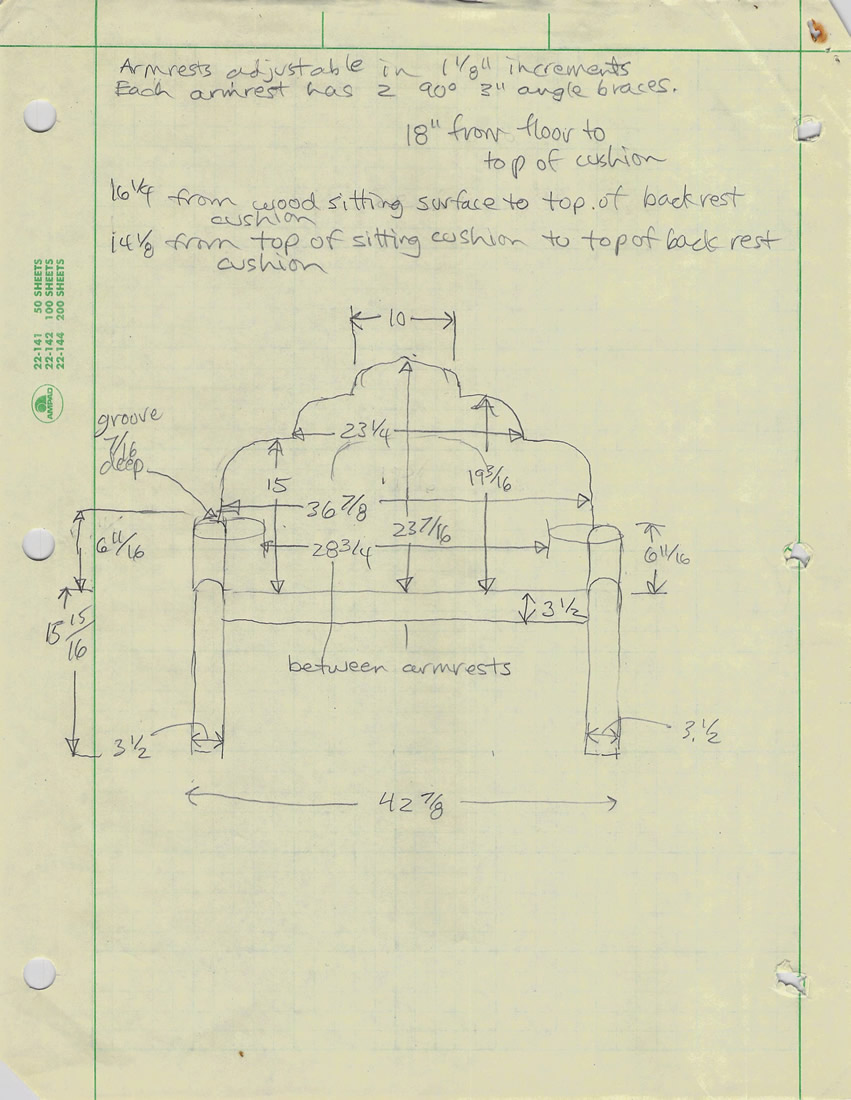 Armrests adjustable in 1 1/8" increments
Each armrest has 2 90° 3" angle braces.
18" from floor to
top of cushion
16 1/4 from wood sitting surface to top of backrest
cushion
14 1/8 from top of sitting cushion to top of back rest
cushion
22-141 50 SHEETS
22-142 100 SHEETS
22-144 200 SHEETS
AMPAD
10
groove
7/16
deep
23 1/4
15
19 3/16
36 7/8
23 7/16
6 11/16
28 3/4
6 11/16
3 1/2
15 15/16
between armrests
3 1/2
3 1/2
42 7/8